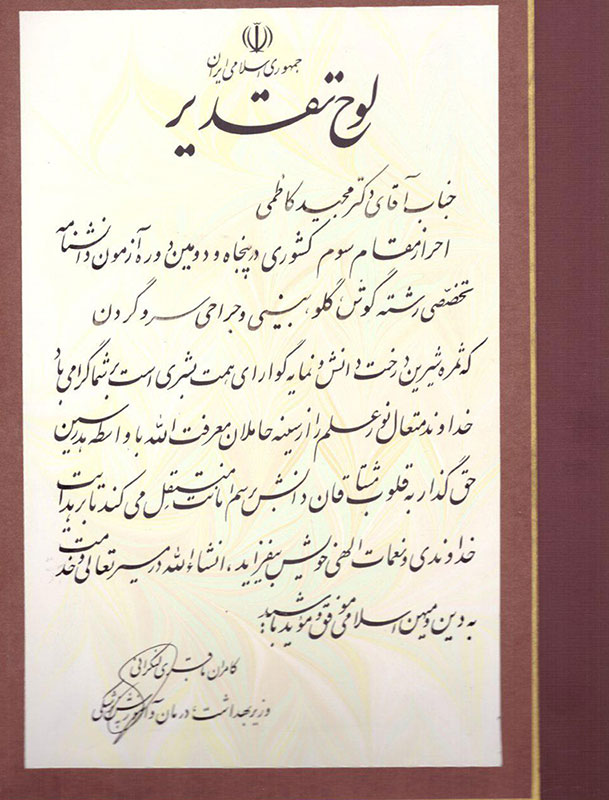 جمهوری اسلامی ایران
لوح تقدیر
جناب آقای دکتر مجید کاظمی
احراز مقام سوم کشوری در پنجاه و دومین دوره آزمون دانشنامه
تخصصی رشته گوش گلو بینی و جراحی سر و گردن
که ثمره شیرین درخت دانش و نمایه گوارای همت بشری است بر شما گرامی باد
خداوند متعال نور علم را از سینه حاملان معرفت الله با واسطه مدرسین
حق گذار به قلوب مشتاقان دانش برسم امانت منتقل می کند تا بر هدایت
خداوندی و نعمات الهی خویش بیفزاید، انشاءالله در مسیر تعالی و خدمت
به دین و میهن اسلامی موفق و مؤید باشید
کامران باقری لنکرانی
وزیر بهداشت، درمان و آموزش پزشکی